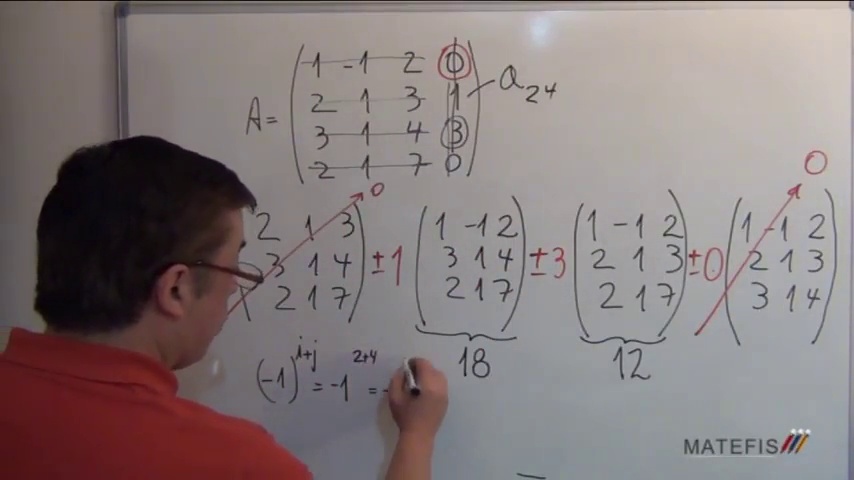 A = ( 1 -1 2 0
2 1 3 1
3 1 4 3
2 1 7 0 ) a₂₄
0 0
( 2 1 3
3 1 4
2 1 7 ) ±1 ( 1 -1 2
3 1 4
2 1 7 ) ±3 ( 1 -1 2
2 1 3
2 1 7 ) ±0 ( 1 -1 2
2 1 3
3 1 4 )
18 12
(-1)^i+j = -1^2+4 = -
MATEFIS